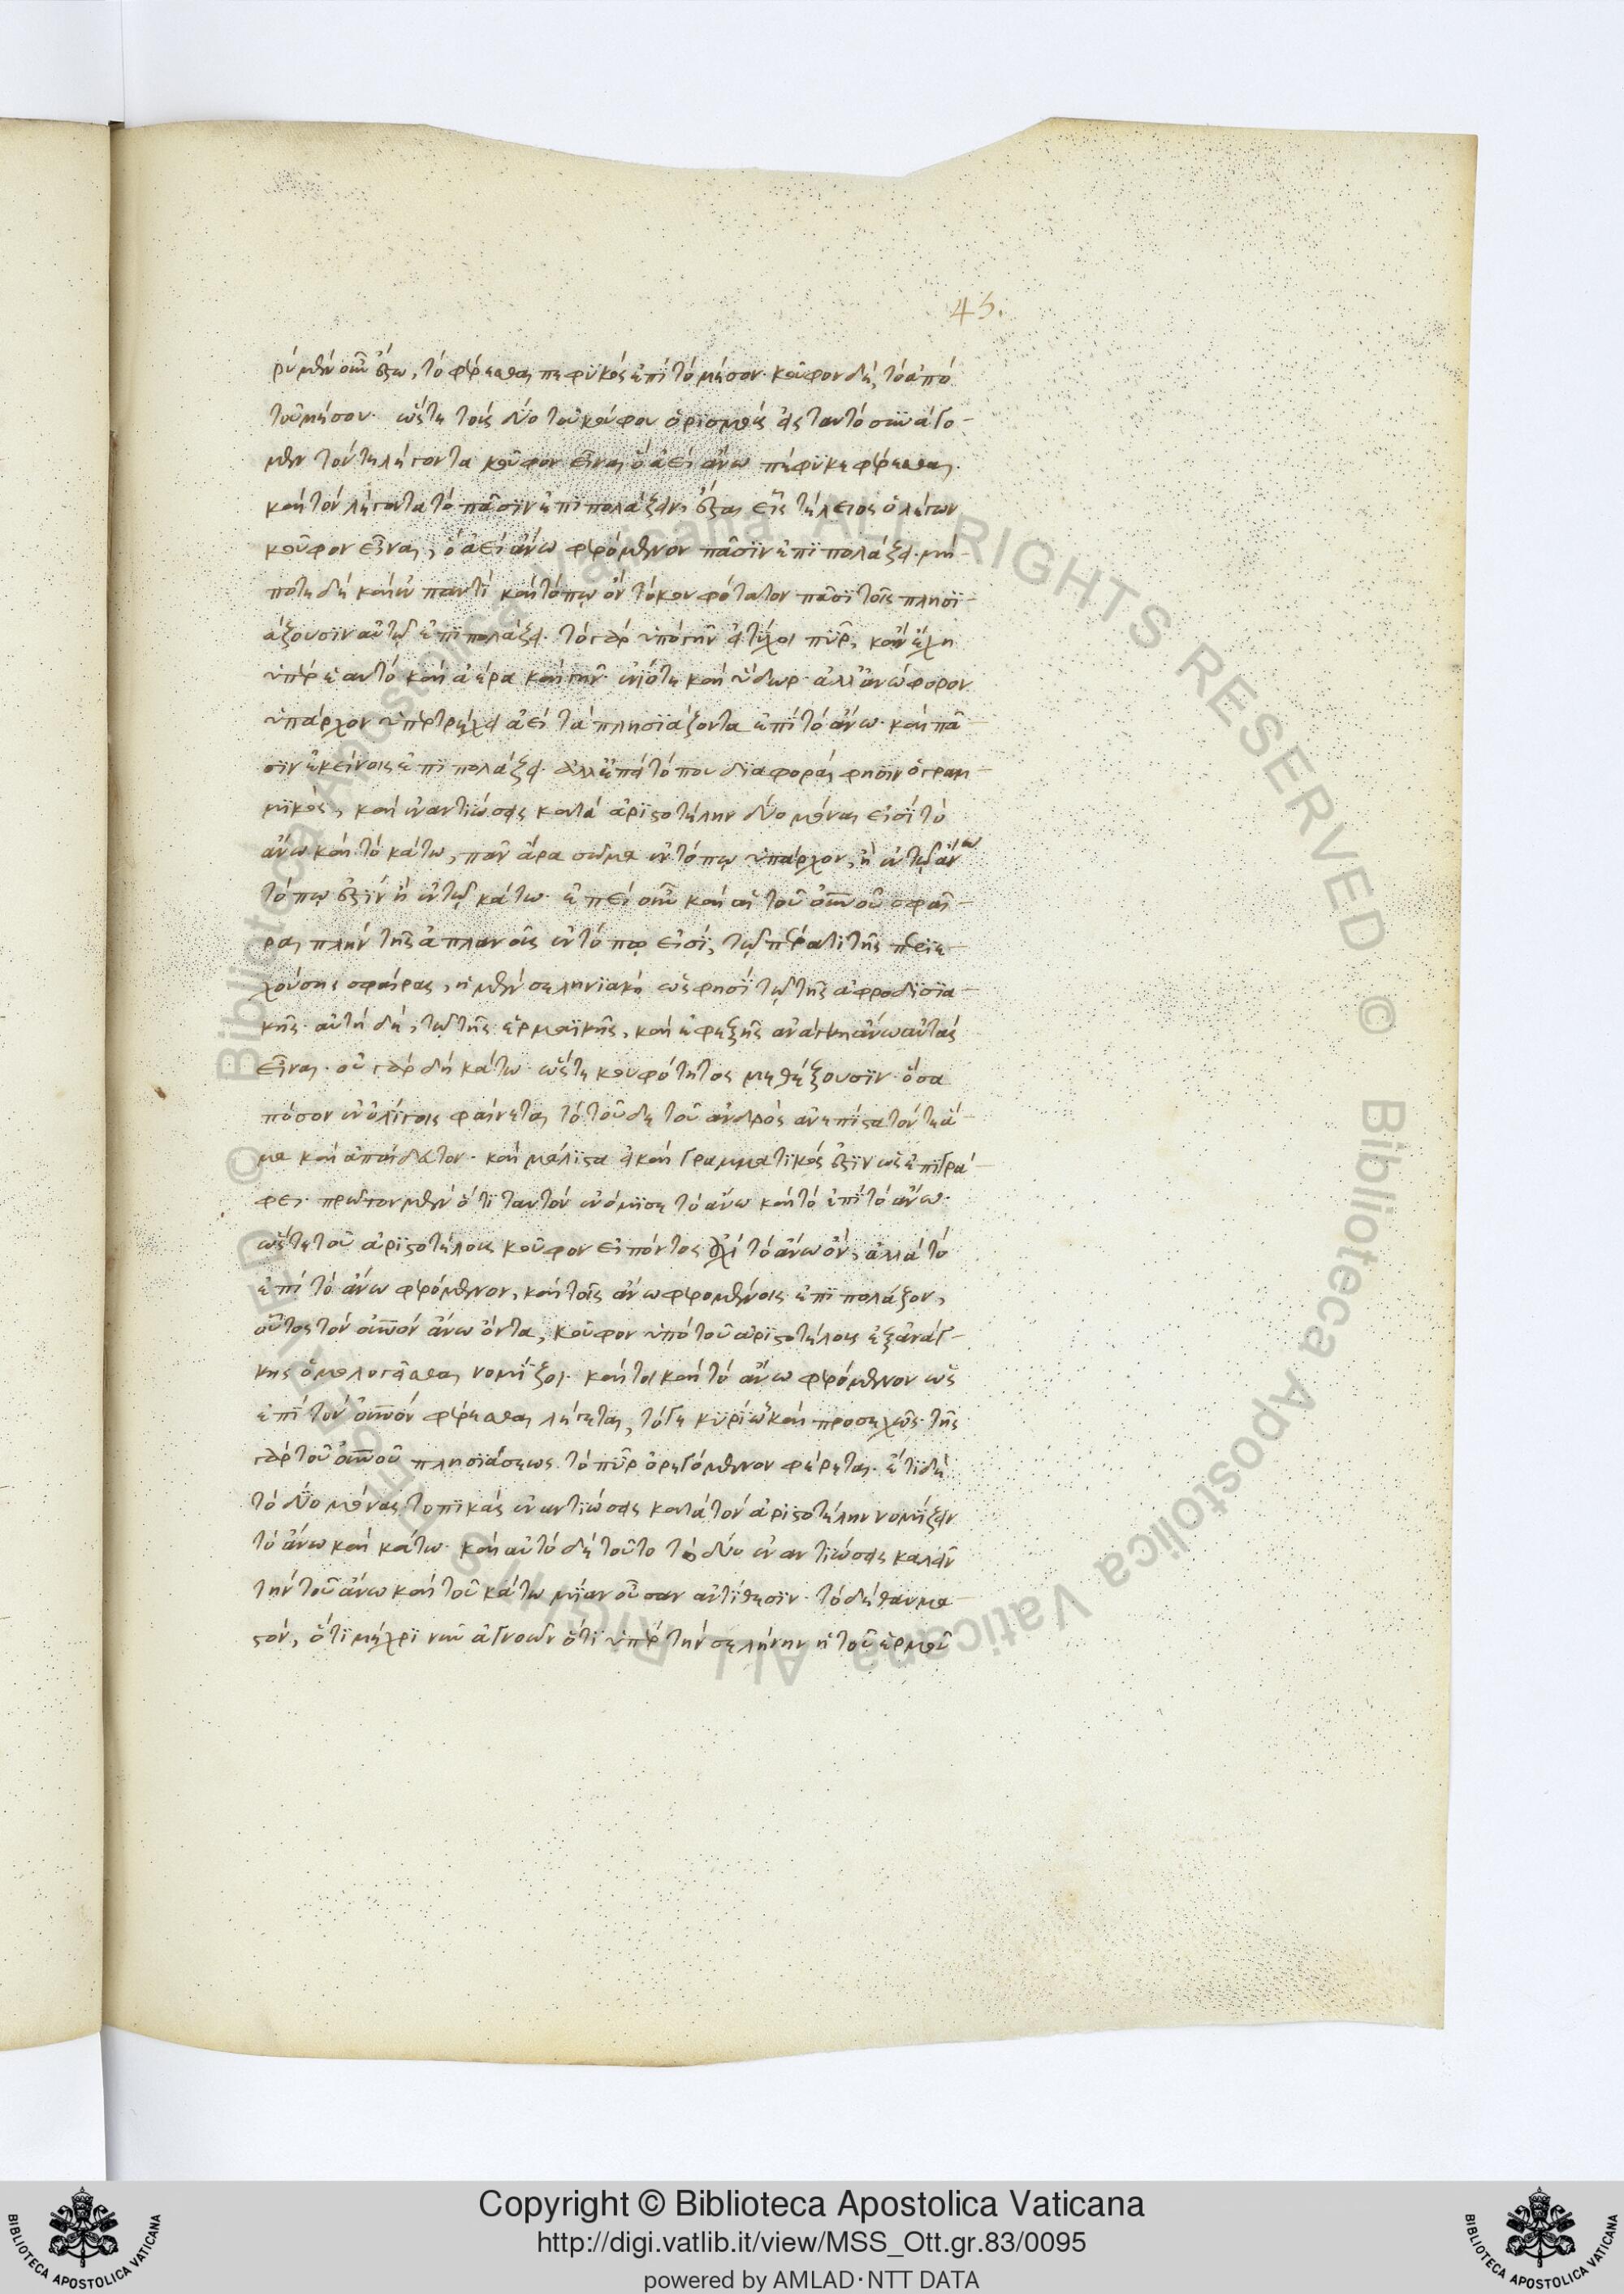 43.
ρὺ μὲν οὖν ἔστω, τὸ φέρεσθαι πεφυκὸς ἐπὶ τὸ μέσον. κοῦφον δὲ, τὸ ἀπὸ
τοῦ μέσου. ὥστε τοὺς δύο τοῦ κούφου ὁρισμοὺς εἰς ταυτὸ συνάγο-
μεν τόν τε λέγοντα κοῦφον εἶναι ὃ ἀεὶ ἄνω πέφυκε φέρεσθαι.
καὶ τὸν λέγοντα τὸ πᾶσιν ἐπιπολάζειν, ἔσται εἷς τέλειος ὁ λέγων
κοῦφον εἶναι, ὃ ἀεὶ ἄνω φερόμενον πᾶσιν ἐπιπολάζει. μή-
ποτε δὲ καὶ ἐν παντὶ καὶ τόπῳ ὂν τὸ κουφότατον πᾶσι τοῖς πλησι-
άζουσιν αὐτῷ ἐπιπολάζει. τὸ γὰρ ὑπὸ γῆν εἰ τύχοι πῦρ, κἂν ἔχῃ
ὑπὲρ ἑαυτὸ καὶ ἀέρα καὶ γῆν. ἐνίοτε καὶ ὕδωρ. ἀλλ' ἀνώφορον
ὑπάρχον ὑπερτρέχει ἀεὶ τὰ πλησιάζοντα ἐπὶ τὸ ἄνω. καὶ πᾶ-
σιν ἐκείνοις ἐπιπολάζει. ἀλλ' ἐπεὶ τόπου διαφοραὶ φησιν ὁ γραμ-
μικὸς, καὶ ἐναντιώσεις κατὰ ἀριστοτέλην δύο μόναι εἰσὶ τὸ
ἄνω καὶ τὸ κάτω, πᾶν ἄρα σῶμα ἐν τόπῳ ὑπάρχον, ἢ ἐν τῷ ἄνω
τόπῳ ἐστὶν ἢ ἐν τῷ κάτω. ἐπεὶ οὖν καὶ αἱ τοῦ οὐνοῦ σφαῖ-
ραι πλὴν τῆς ἀπλανοῦς ἐν τόπῳ εἰσὶ, τῷ πέρατι τῆς περιε-
χούσης σφαίρας, ἡ μὲν σεληνιακὴ ὥς φησι τῷ τῆς ἀφροδισια-
κῆς. αὐτὴ δὲ, τῷ τῆς ἑρμαϊκῆς, καὶ ἐφεξῆς ἀνάγκη ἄνω αὐτὰς
εἶναι. οὐ γὰρ δὴ κάτω. ὥστε κουφότητος μεθέξουσιν. ὅσα
πόσον ἐν ὀλίγοις φαίνεται τὸ τοῦδε τοῦ ἀνδρὸς ἀνεπίστατόν τε ἅ-
μα καὶ ἀπαίδευτον. καὶ μάλιστα εἰ καὶ γραμματικός ἐστιν ὡς ἐπιγρά-
φει. πρῶτον μὲν ὅτι ταυτὸν ἐνόμισε τὸ ἄνω καὶ τὸ ἐπὶ τὸ ἄνω.
ὥστε τοῦ ἀριστοτέλους κοῦφον εἰπόντος οὐχὶ τὸ ἄνω ὂν, ἀλλὰ τὸ
ἐπὶ τὸ ἄνω φερόμενον, καὶ τοῖς ἄνω φερομένοις ἐπιπολάζον,
οὗτος τὸν οὐνὸν ἄνω ὄντα, κοῦφον ὑπὸ τοῦ ἀριστοτέλους ἐξ ἀνάγ-
κης ὁμολογεῖσθαι νομίζοι. καίτοι καὶ τὸ ἄνω φερόμενον ὡς
ἐπὶ τὸν οὐνὸν φέρεσθαι λέγεται, τό γε κυρίως καὶ προσεχῶς. τῆς
γὰρ τοῦ οὐνοῦ πλησιάσεως τὸ πῦρ ὀρεγόμενον φέρεται. ἔτι δὲ
τὸ δύο μόνας τοπικὰς ἐναντιώσεις κατὰ τὸν ἀριστοτέλην νομίζειν
τὸ ἄνω καὶ κάτω. καὶ αὐτὸ δὲ τοῦτο τὸ δύο ἐναντιώσεις καλεῖν
τὴν τοῦ ἄνω καὶ τοῦ κάτω μίαν οὖσαν ἀντίθεσιν. τὸ δὲ θαυμα-
στὸν, ὅτι μέχρι νῦν ἀγνοῶν ὅτι ὑπὲρ τὴν σελήνην ἡ τοῦ ἑρμοῦ
Copyright © Biblioteca Apostolica Vaticana
http://digi.vatlib.it/view/MSS_Ott.gr.83/0095
powered by AMLAD·NTT DATA